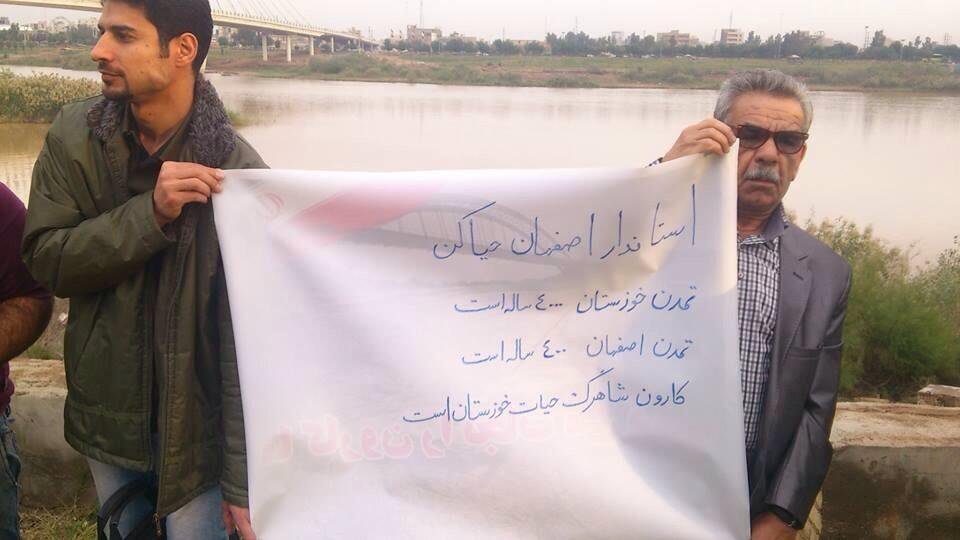 استاندار اصفهان حیا کن
تمدن خوزستان ۴۰۰۰ ساله است
تمدن اصفهان ۴۰۰ ساله است
کارون شاهرگ حیات خوزستان است
کارون را